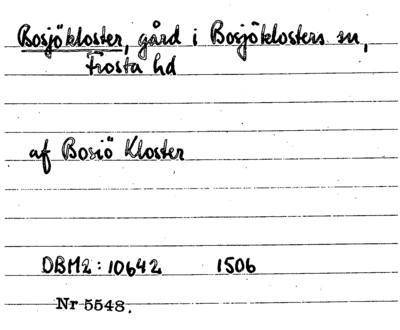 Bosjökloster, gård i Bosjöklosters sn,
Frosta hd
af Bosiö Kloster
DBM2: 10642 1506
Nr 5548.